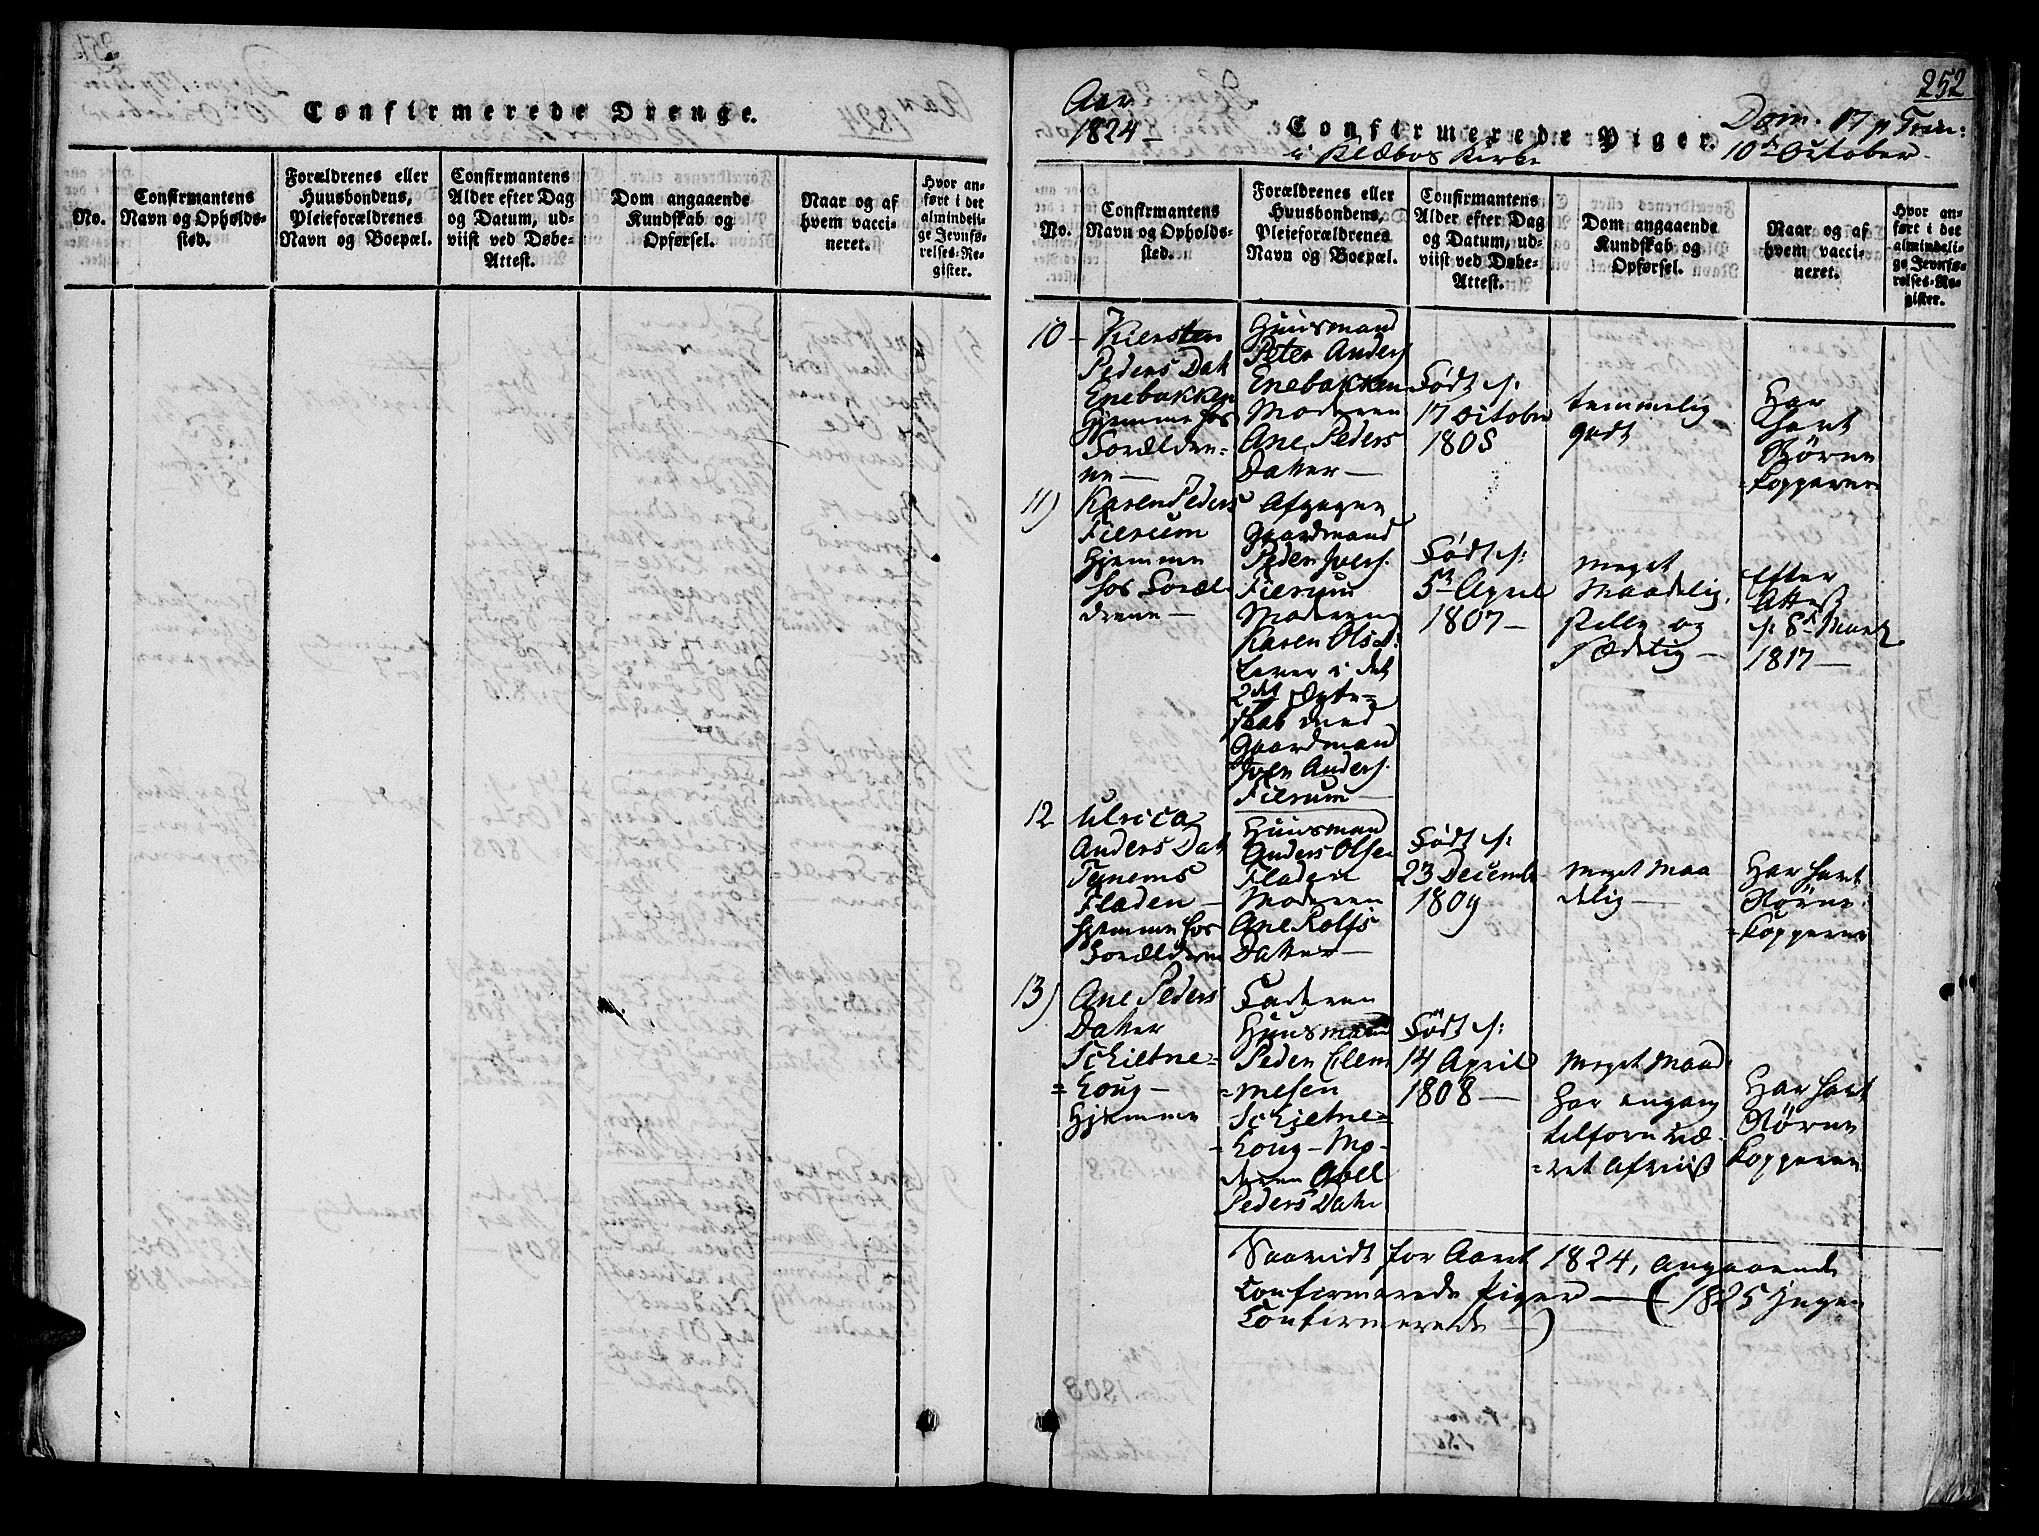 Confirmerede Drenge.
No.
Confirmantens
Navn og Opholds-
sted.
Forældrenes eller
Huusbondens,
Pleieforældrenes
Navn og Boepæl.
Confirmantens
Alder efter Dag
og Datum, ud-
viist ved Døbe-
Attest.
Dom angaaende
Kundskab og
Opførsel.
Naar og af
hvem vacci-
neret.
Hvor an-
ført i det
almindeli-
ge Jevnfø-
relses-Re-
gister.
252
Aar
1824-
Confirmerede Piger.
i Klæboe Kirke
Dom. 17 p Trin:
10de October
No.
Confirmantens
Navn og Opholds-
sted.
Forældrenes eller
Huusbondens,
Pleieforældrenes
Navn og Boepæl.
Confirmantens
Alder efter Dag
og Datum, ud-
viist ved Døbe-
Attest.
Dom angaaende
Kundskab og
Opførsel.
Naar og af
hvem vacci-
neret.
Hvor an-
ført i det
almindeli-
ge Jevnfø-
relses-Re-
gister.
10-
Kiersten
Peders Dat
Enebakken
Hjemme hos
Forældre-
ne-
Huusmand
Peter Anders
Enebakken
Moderen
Ane Peders
Datter-
Født d:
17 October
1808
temmelig
godt
Har
havt
Børne
-kopperne
11)
Karen Peders
Fierum
Hjemme
hos Foræl-
drene-
Afgagne
Gaardmand
Peder Ivers.
Fierum
Moderen
Karen Olsd:
lever i det
2det Egte-
skab med
Gaardmand
Iver Anders.
Fierum
Født d:
5te April
1807-
meget
Maadelig,
stille og
sædelig-
Efter
Attest
d: 8de Marts
1817-
12
Ulrica
Anders Dat
Tanems
Fladen-
Hjemme hos
Forældrene
Huusmand
Anders Olsen
Fladen
Moderen
Ane Rolfs
Datter-
Født d:
23 Decemb
1809
meget Maa
delig-
Har havt
Børne-
-kopperne
13)
Ane Peders
Datter
Schietne-
=Houg-
Hjemme
Faderen
Huusmand
Peder Clem
=mesen
Schietne=
-Houg-Mo-
deren
Peders Datter
Født d:
14 April
1808-
Meget Maad.
har engang
tilforn væ-
=ret afviist
Har havt
Børne
kopperne
Saavidt for Aaret 1824, angaaende
Confirmerede Piger - (1825 Ingen
Confirmerede-)